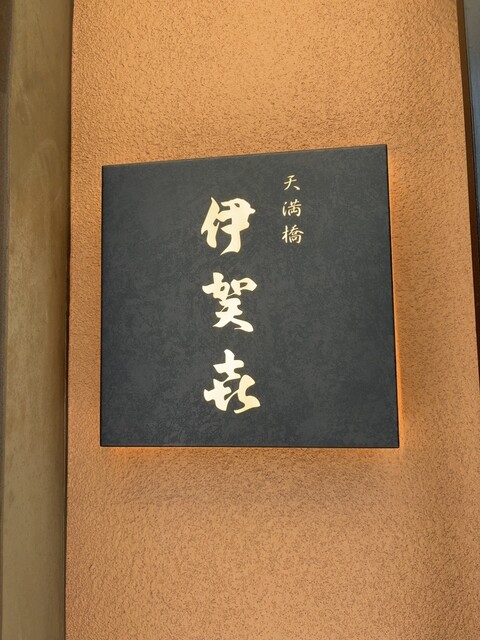 天満橋
伊賀㐂